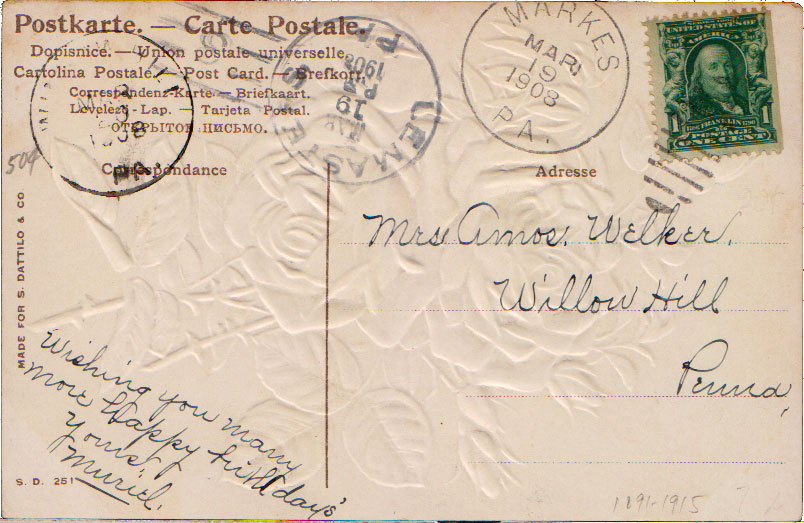 Postkarte. — Carte Postale.
Dopisnice. — Union postale universelle.
Cartolina Postale. — Post Card. — Brefkort.
Correspondenz-Karte. — Briefkaart.
Levelezö-Lap. — Tarjeta Postal.
ОТКРЫТОЕ ПИСЬМО.
Correspondance
Adresse
LEMASTERS
PA.
MAR
19
1908
MARKES
MAR
19
1908
PA.
UNITED STATES OF
1
FRANKLIN
1
POSTAGE
ONE CENT
504
MADE FOR S. DATTILO & CO
Mrs Amos. Welker.
Willow Hill
Penna,
Wishing you many
more happy birthdays
Yours,
Muriel.
S. D. 251
1891-1915